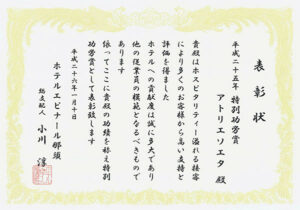 表彰状
平成二十五年 特別功労賞
アトリエソエタ 殿
貴殿はホスピタリティー溢れる接客
により多くのお客様から高い支持と
評価を得ました
ホテルへの貢献度は誠に多大であり
他の従業員の模範となるべきもので
あります
依ってここに貴殿の功績を称え特別
功労賞として表彰致します
平成二十六年一月十日
ホテルエピナール那須
総支配人 小川 淳